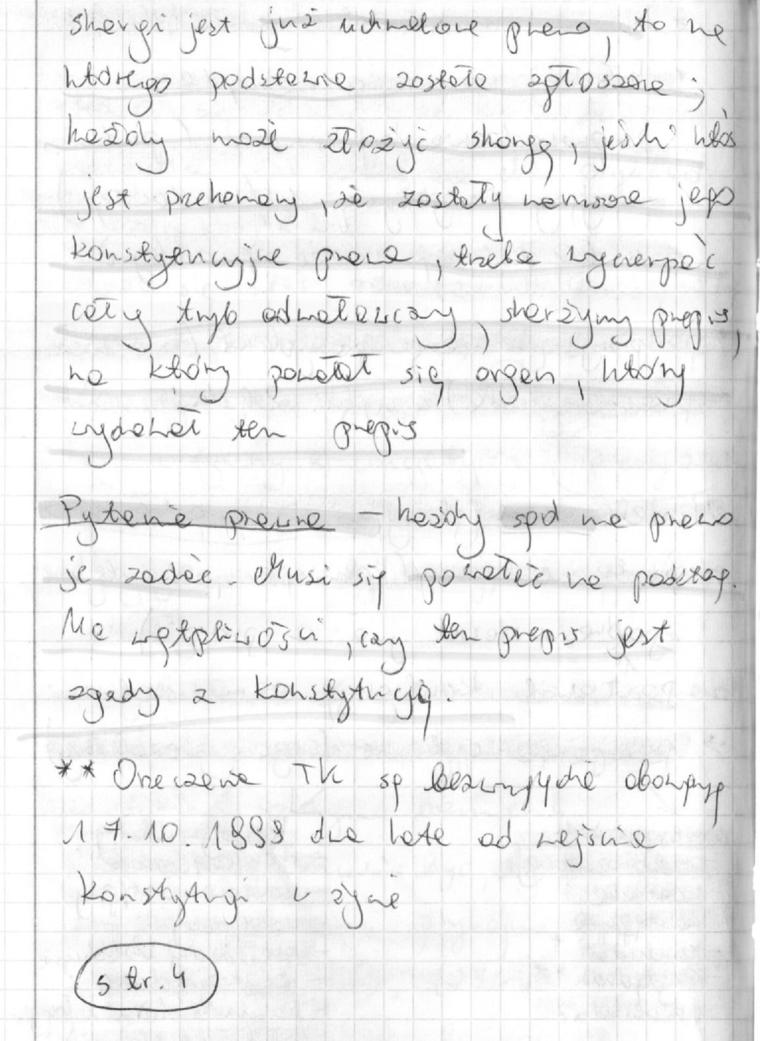 skargi jest już uchwalone prawo, to na
którego podstawie została zgłoszona;
każdy może złożyć skargę, jeśli ktoś
jest przekonany, że zostały naruszone jego
konstytucyjne prawa, trzeba wyczerpać
cały tryb odwoławczy, skarżymy przepis,
na który powołał się organ, który
wydawał ten przepis
Pytanie prawne – każdy sąd ma prawo
je zadać. Musi się powołać na podstaw.
Ma wątpliwości, czy ten przepis jest
zgodny z Konstytucją.
** Orzeczenia TK są bezwzględnie obowiązują
17.10.1999 dwa lata od wejścia
Konstytucji w życie
str. 4